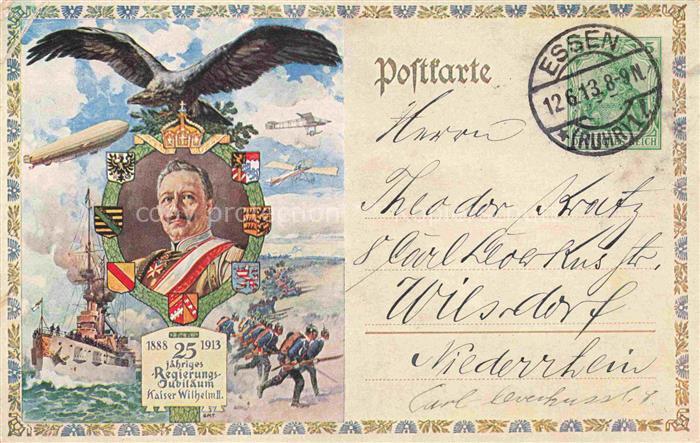 Postkarte
ESSEN
12.6.13.8-9N.
*(RUHR)1
5
DEUTSCHES REICH
Herrn
Theodor Kratz
8 Carl Leverkus str.
Wilsdorf
Niederrhein
Carl Leverkusstr. 8
1888 25 1913
jähriges
Regierungs-
Jubiläum
Kaiser Wilhelm II.